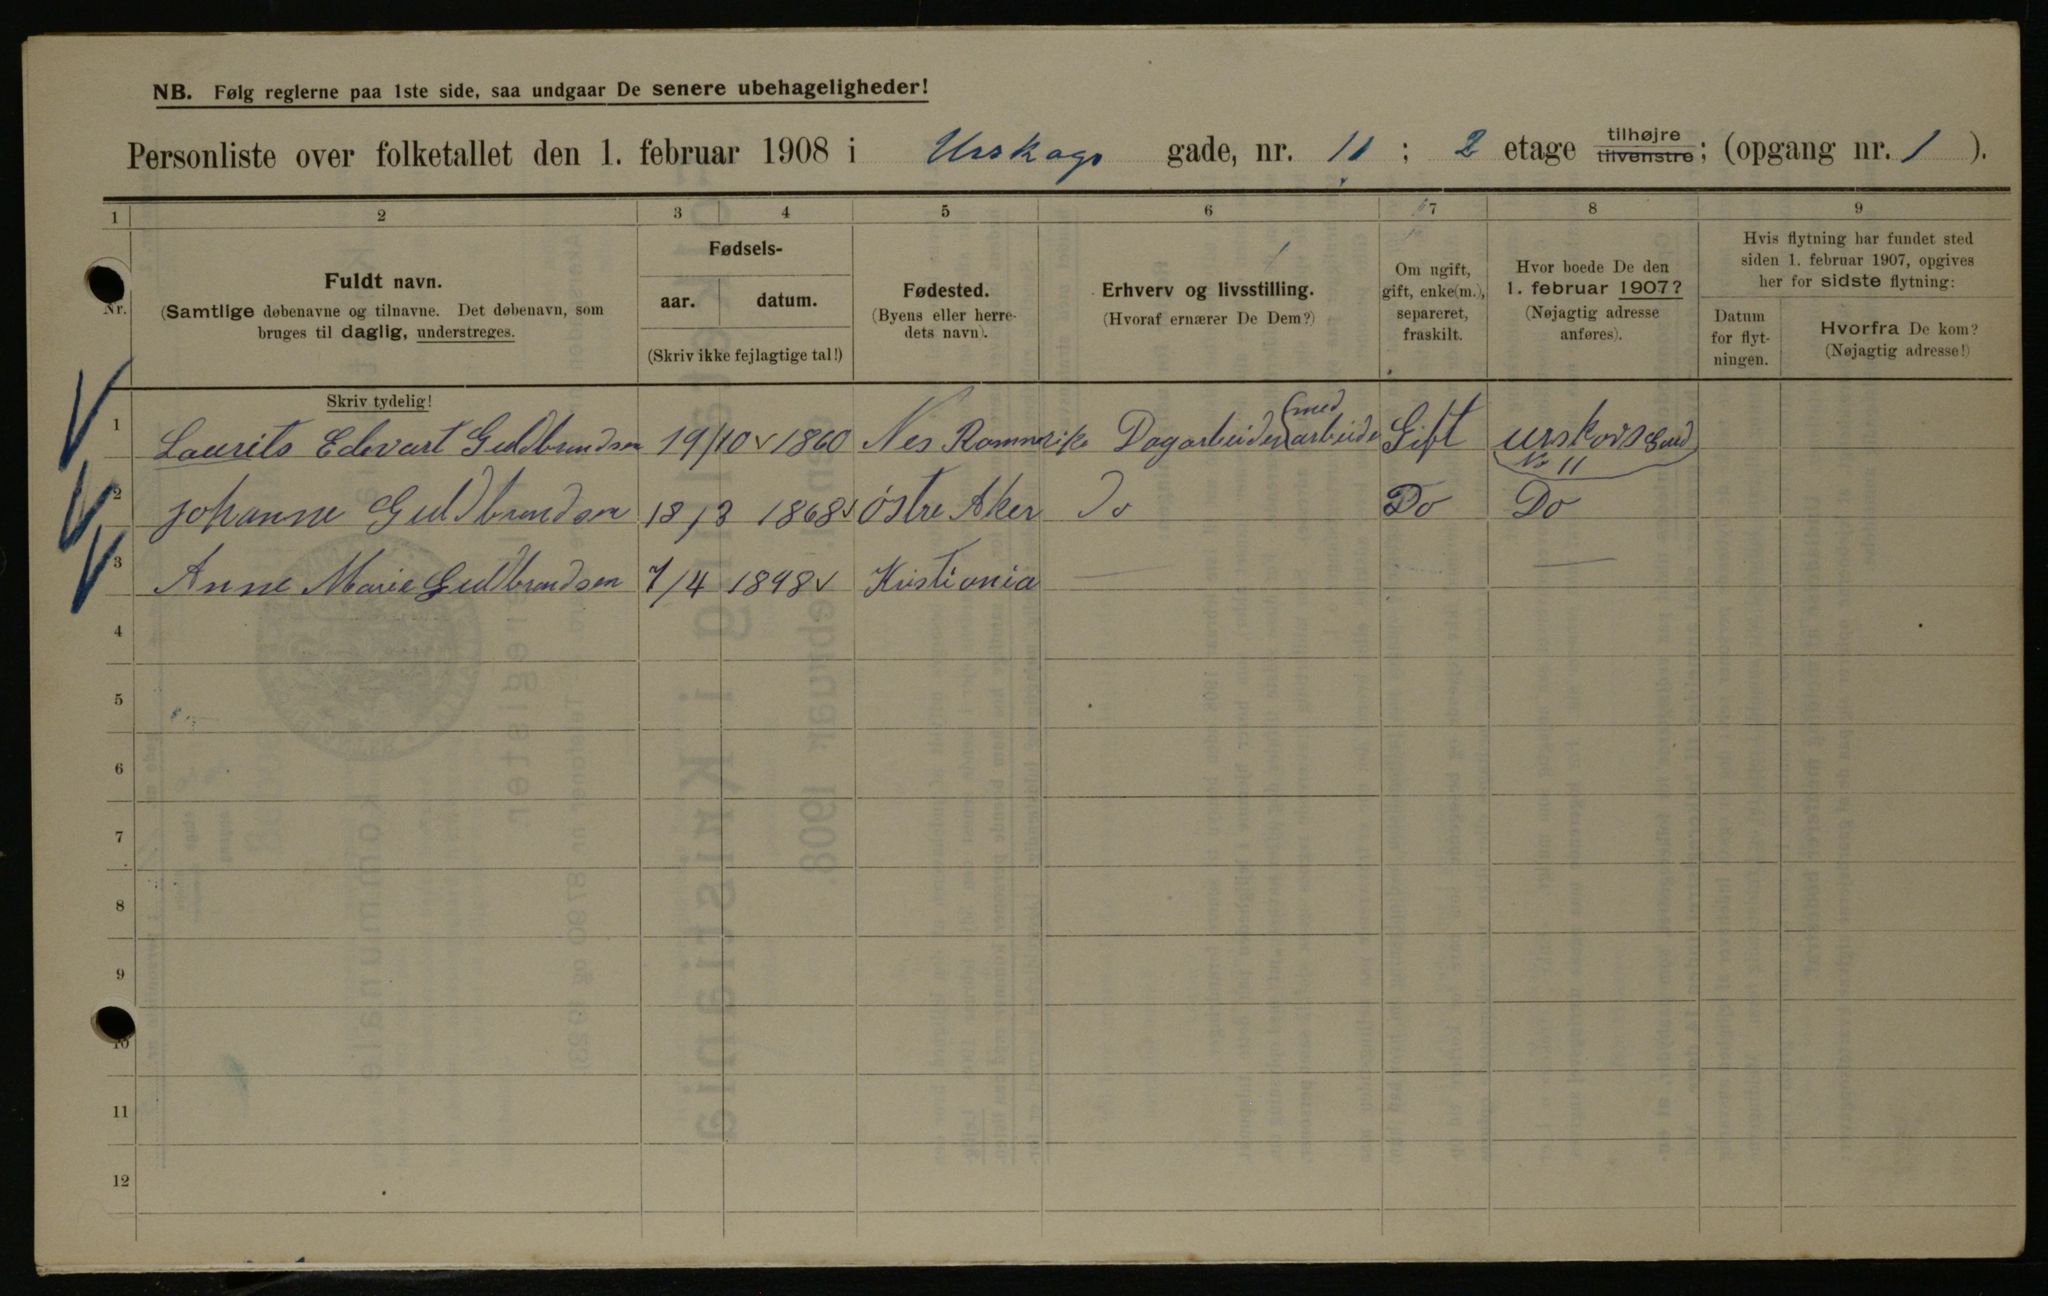 NB. Følg reglerne paa 1ste side, saa undgaar De senere ubehageligheder!
Personliste over folketallet den 1. februar 1908 i Urskogs gade, nr. 11 ; 2 etage tilhøjre tilvenstre; (opgang nr. 1 ).
1 2 3 4 5 6 7 8 9
Nr.
Fuldt navn.
(Samtlige døbenavne og tilnavne. Det døbenavn, som
bruges til daglig, understreges.
Skriv tydelig!
Fødsels-
aar. datum.
(Skriv ikke fejlagtige tal!)
Fødested.
(Byens eller herre-
dets navn).
Erhverv og livsstilling.
(Hvoraf ernærer De Dem?)
Om ugift,
gift, enke(m.),
separeret,
fraskilt.
Hvor boede De den
1. februar 1907?
(Nøjagtig adresse
anføres).
Hvis flytning har fundet sted
siden 1. februar 1907, opgives
her for sidste flytning:
Datum
for flyt-
ningen.
Hvorfra De kom?
(Nøjagtig adresse!)
1 Laurits Edevart Guldbrandsen 19/10 1860 Nes Romerike Dagarbeider (med arbeide Gift Urskovs Gad No 11
2 Johanne Guldbrandsen 18/3 1868 Østre Aker Do Do Do
3 Anne Marie Guldbrandsen 7/4 1898 Kristiania — —
4
5
6
7
8
9
10
11
12